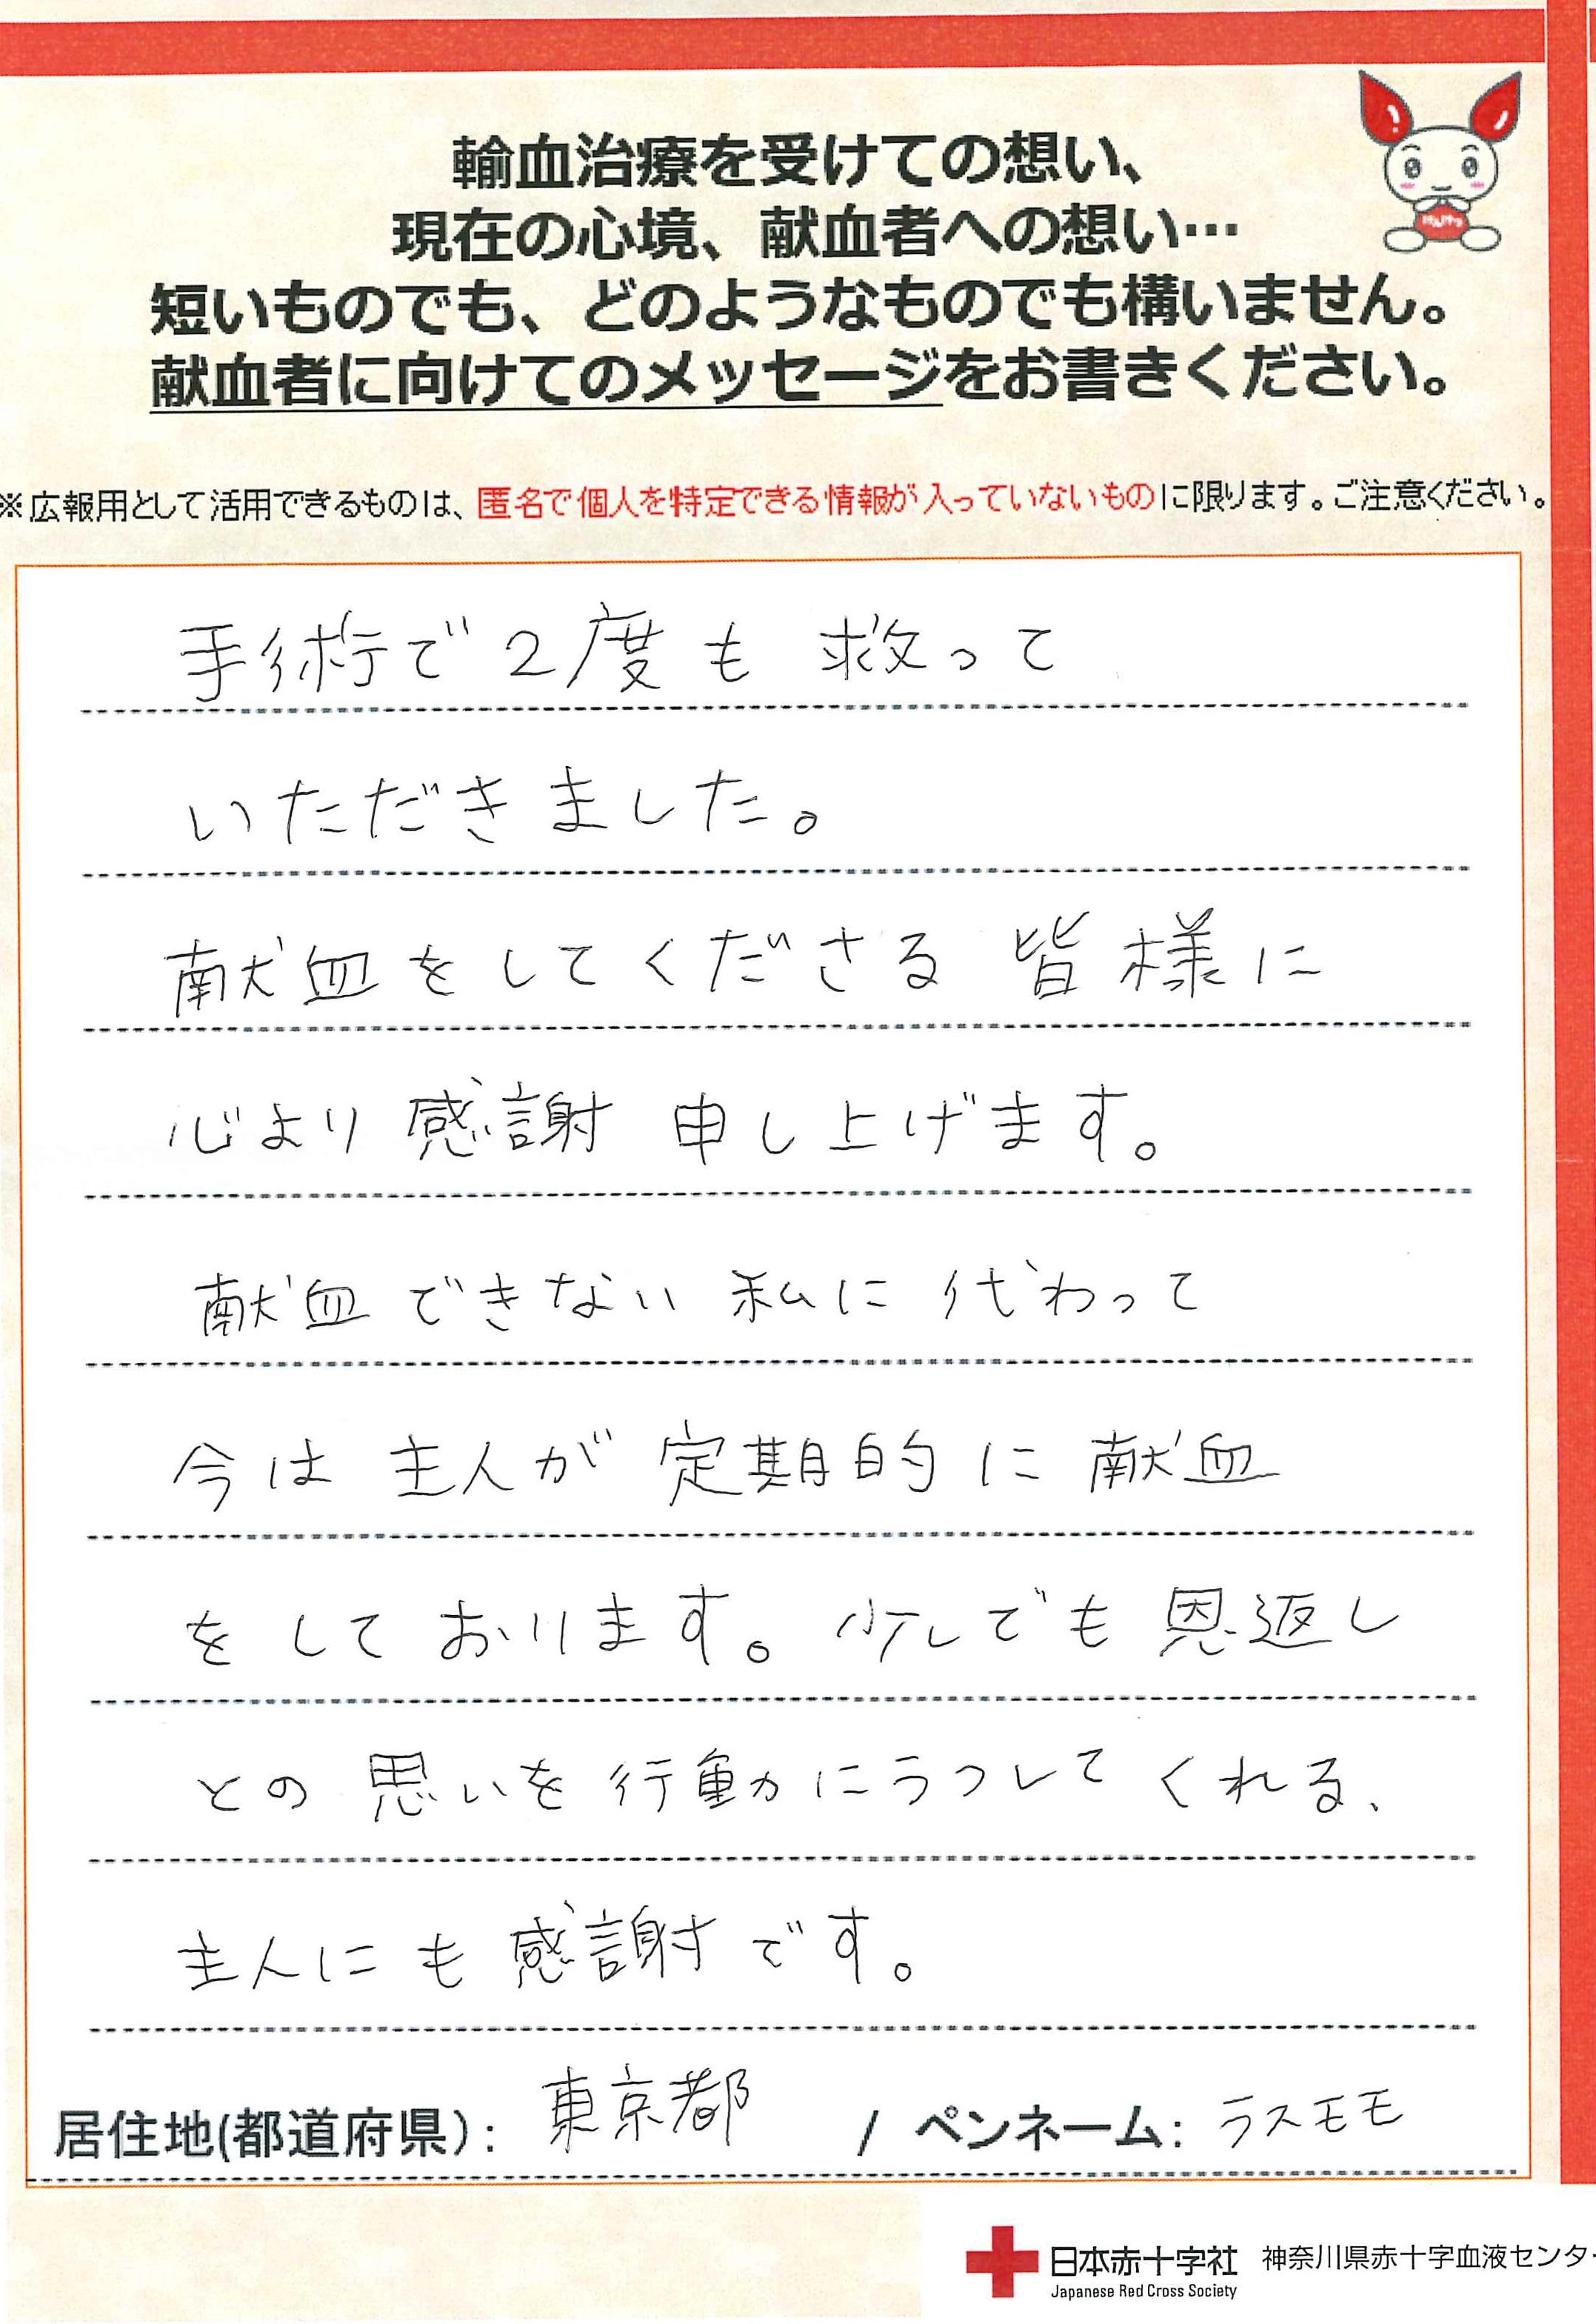 輸血治療を受けての想い、
現在の心境、献血者への想い…
短いものでも、どのようなものでも構いません。
献血者に向けてのメッセージをお書きください。
※広報用として活用できるものは、匿名で個人を特定できる情報が入っていないものに限ります。ご注意ください。
手術で2度も救って
いただきました。
献血をしてくださる皆様に
心より感謝申し上げます。
献血できない私に代わって
今は主人が定期的に献血
をしております。少しでも恩返し
との思いを行動にうつしてくれる、
主人にも感謝です。
居住地(都道府県)： 東京都 / ペンネーム： ラスモモ
日本赤十字社 神奈川県赤十字血液センター
Japanese Red Cross Society